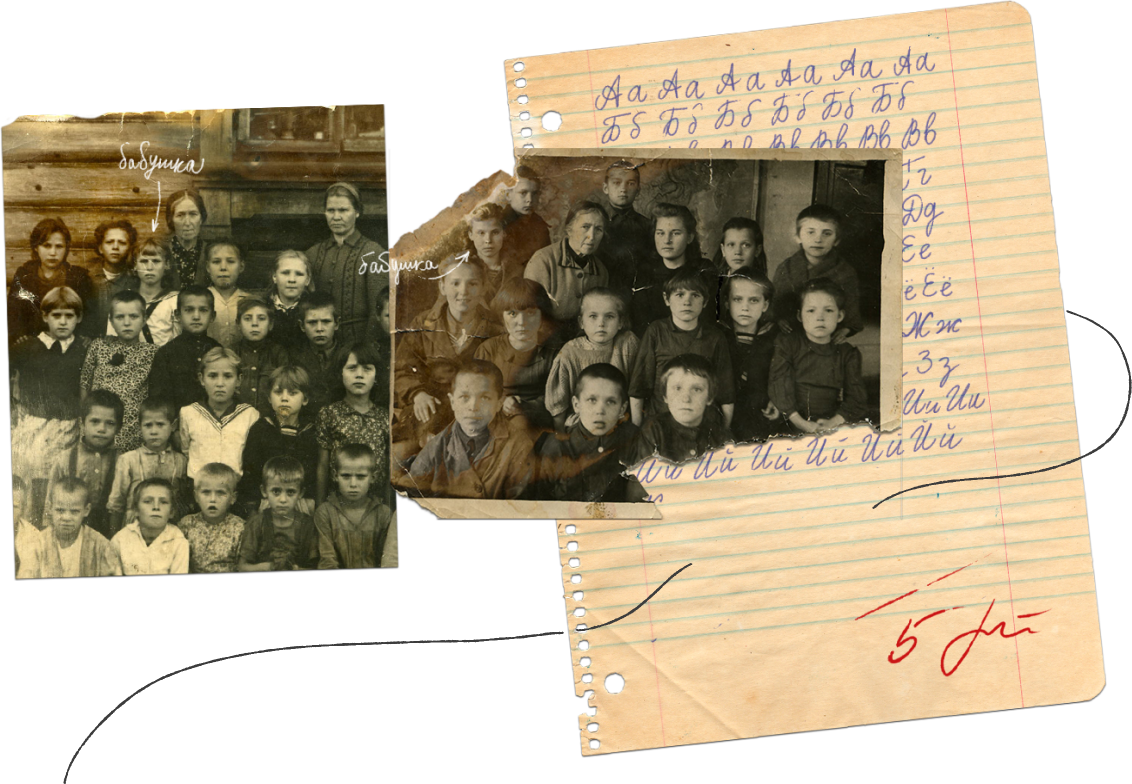 бабушка
бабушка
Аа Аа Аа Аа Аа Аа
Бб Бб Бб Бб Бб Бб
Вв Вв Вв Вв
Гг
Дд
Ее
ё Ёё
Жж
Зз
Ии Ии
Ии Ий Ий Ий Ий Ий
5